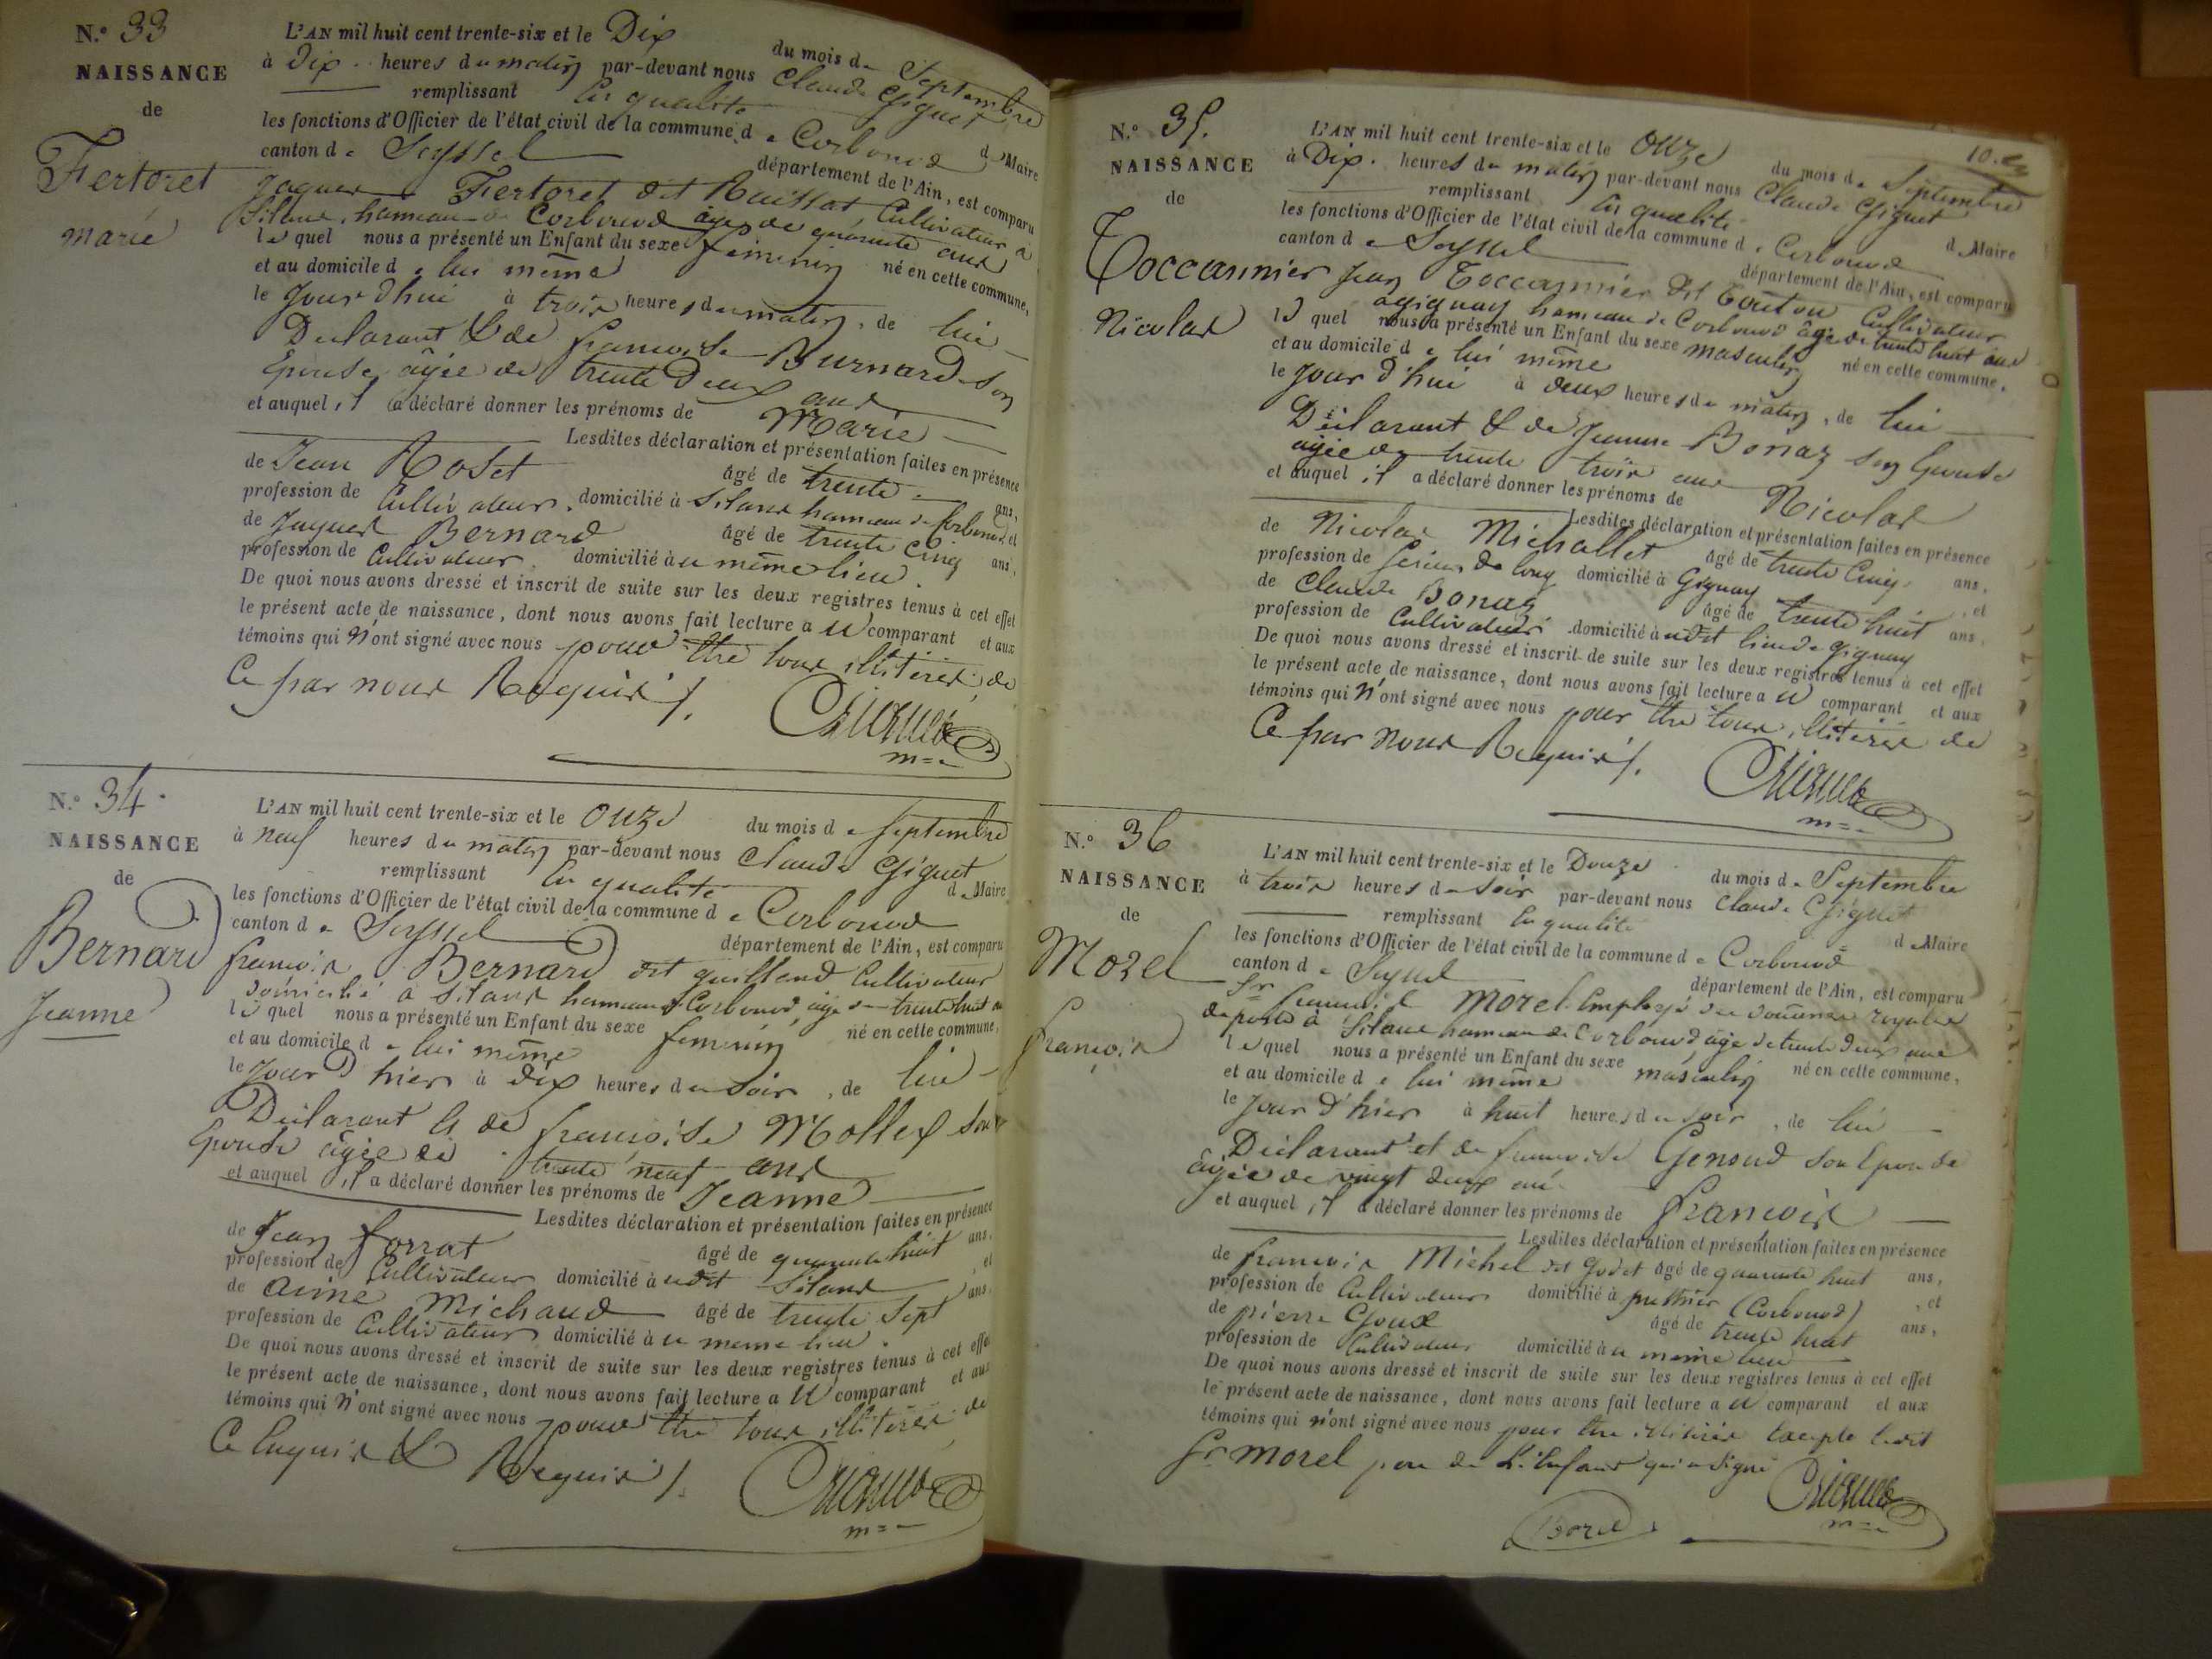 N.° 33
NAISSANCE
de
Fertoret
Marie
L'AN mil huit cent trente-six et le Dix du mois de Septembre
à Dix heures du matin par-devant nous Claude Giguet
remplissant en qualité de Maire
les fonctions d'Officier de l'état civil de la commune de Corbonod
canton de Seyssel département de l'Ain, est comparu
Jaques Fertoret dit Ruissat, Cultivateur à
Silans, hameau de Corbonod âgé de quarante ans
lequel nous a présenté un Enfant du sexe féminin né en cette commune,
et au domicile de lui même
le Jour d'hui à trois heures du matin, de lui
Déclarant & de françoise Burnard son
Epouse, âgée de trente Deux ans
et auquel il a déclaré donner les prénoms de Marie
Lesdites déclaration et présentation faites en présence
de Jean Roset âgé de trente ans,
profession de Cultivateur, domicilié à Silans hameau de Corbonod, et
de Jaques Bernard âgé de trente cinq ans,
profession de Cultivateur domicilié à u même lieu.
De quoi nous avons dressé et inscrit de suite sur les deux registres tenus à cet effet
le présent acte de naissance, dont nous avons fait lecture a u comparant et aux
témoins qui n'ont signé avec nous pour être tous illitérés, de
Ce par nous Requis /.
Giguet
m=
N.° 34
NAISSANCE
de
Bernard
Jeanne
L'AN mil huit cent trente-six et le Onze du mois de Septembre
à neuf heures du matin par-devant nous Claude Giguet
remplissant en qualité de Maire
les fonctions d'Officier de l'état civil de la commune de Corbonod
canton de Seyssel département de l'Ain, est comparu
françois Bernard dit guilland Cultivateur
domicilié à Silans hameau de Corbonod, âgé de trente huit ans
lequel nous a présenté un Enfant du sexe féminin né en cette commune,
et au domicile de lui même
le Jour D'hier à dix heures du soir, de lui
Déclarant & de françoise Mollex son
Epouse âgée de trente neuf ans
et auquel il a déclaré donner les prénoms de Jeanne
Lesdites déclaration et présentation faites en présence
de Jean forrat âgé de quarante huit ans,
profession de Cultivateur domicilié à udit Silans, et
de aimé Michaud âgé de trente sept ans,
profession de Cultivateur domicilié à u même lieu.
De quoi nous avons dressé et inscrit de suite sur les deux registres tenus à cet effet
le présent acte de naissance, dont nous avons fait lecture a u comparant et aux
témoins qui n'ont signé avec nous pour être tous illitérés de
Ce Enquis & Requis /.
Giguet
m=
10.e
N.° 35.
NAISSANCE
de
Toccannier
Nicolas
L'AN mil huit cent trente-six et le Onze du mois de Septembre
à Dix heures du matin par-devant nous Claude Giguet
remplissant en qualité de Maire
les fonctions d'Officier de l'état civil de la commune de Corbonod
canton de Seyssel département de l'Ain, est comparu
Jean Toccannier dit Touton Cultivateur
à gignay hameau de Corbonod âgé de trente huit ans
lequel nous a présenté un Enfant du sexe masculin né en cette commune,
et au domicile de lui même
le Jour d'hui à deux heures du matin, de lui
Déclarant & de Jeanne Bonaz son Epouse
âgée de trente trois ans
et auquel il a déclaré donner les prénoms de Nicolas
Lesdites déclaration et présentation faites en présence
de Nicolas Michallet âgé de trente Cinq ans,
profession de Scieur de long domicilié à Gignay, et
de Claude Bonaz âgé de trente huit ans,
profession de Cultivateur domicilié à udit lieu de gignay
De quoi nous avons dressé et inscrit de suite sur les deux registres tenus à cet effet
le présent acte de naissance, dont nous avons fait lecture a u comparant et aux
témoins qui n'ont signé avec nous pour être tous illitérés de
Ce par nous Requis /.
Giguet
m=
N.° 36
NAISSANCE
de
Morel
françois
L'AN mil huit cent trente-six et le Douze du mois de Septembre
à trois heures du soir par-devant nous Claude Giguet
remplissant en qualité de Maire
les fonctions d'Officier de l'état civil de la commune de Corbonod
canton de Seyssel département de l'Ain, est comparu
Sr. françois Morel Employé des douanes royales
de poste à Silans hameau de Corbonod âgé de trente deux ans
lequel nous a présenté un Enfant du sexe masculin né en cette commune,
et au domicile de lui même
le Jour d'hier à huit heures du soir, de lui
Déclarant et de françoise Genoud son Epouse
âgée de vingt deux ans
et auquel il a déclaré donner les prénoms de françois
Lesdites déclaration et présentation faites en présence
de françois Michel dit Godet âgé de quarante huit ans,
profession de Cultivateur domicilié à (Corbonod), et
de pierre Goux âgé de trente huit ans,
profession de Cultivateur domicilié à u même lieu
De quoi nous avons dressé et inscrit de suite sur les deux registres tenus à cet effet
le présent acte de naissance, dont nous avons fait lecture a u comparant et aux
témoins qui n'ont signé avec nous pour être illitérés Excepté ledit
Sr. Morel père de L'Enfant qui a signé
Giguet
m=